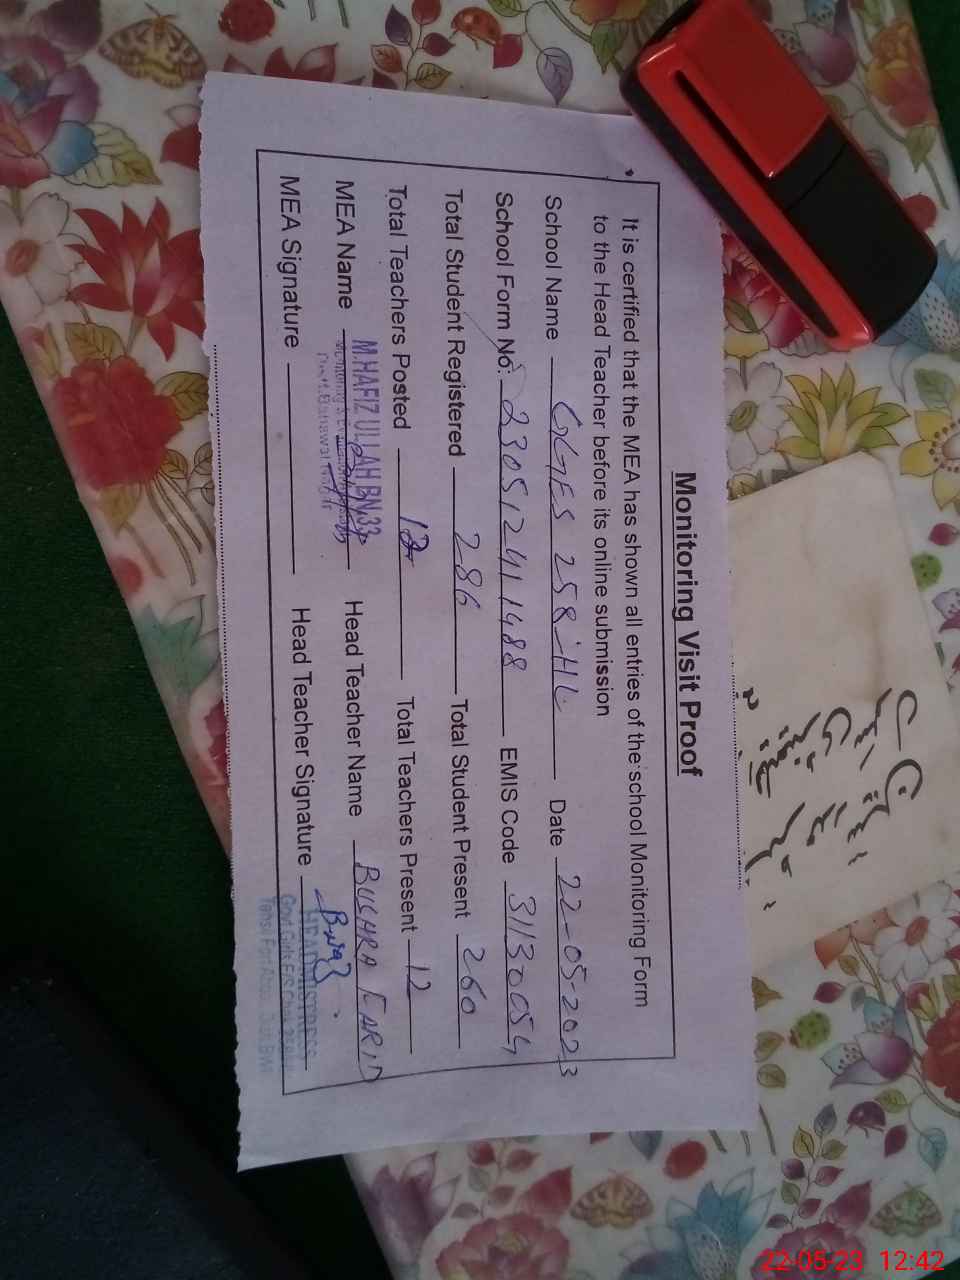 Monitoring Visit Proof
It is certified that the MEA has shown all entries of the school Monitoring Form
to the Head Teacher before its online submission
School Name GGES 258-HL Date 22-05-2023
School Form No. 23051241 1488 EMIS Code 31130054
Total Student Registered 286 Total Student Present 260
Total Teachers Posted 12 Total Teachers Present 12
MEA Name M.HAFIZ ULLAH BN,33 Head Teacher Name BUSHRA FARID
MEA Signature Head Teacher Signature
HEADMISTRESS
22-05-23 12:42